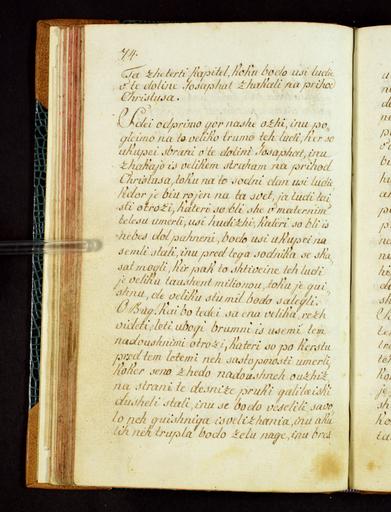 74.
Ta zheterti kapitel, koku bodo usi ludie
o te doline Josaphat zhakali na prihod
Christusa.
Sdei odprimo gor nashe ozhi, inu po
gleimo na to veliko trumo teh ludi, ker so
ukupei sbrani o te dolini Josaphat, inu
zhakajo is velikem straham na prihod
Christusa, toku na to sodni dan usi ludie
kdor je biu rojen na ta svet, ja tudi tai
sti otrozi, kateri so bli she o maternim
telesu umerli, usi hudizhi, kateri so bli is
nebes dol pahneni, bodo usi ukupei na
semli stali, inu pred tega sodnika se ska
sat mogli, kir pak to shtiveine teh ludi
je veliku taushent milionou, toku je gui
shnu, de veliku stu mil bodo salegli.
O Bug, kai bo tedei sa ena velika rezh
videti, leti ubogi brumni is usemi tem
nadoushnimi otrozi, kateri so po kerstu
pred tem letemi neh sastopnosti umerli,
koker seno zhedo nadoushneh ouzhiz
na strani te desnize pruti galilæiski
dusheli stali, inu se bodo veselili savo
lo neh guishniga isvelizhania, inu aku
lih neh trupla bodo zelu nage, inu bres